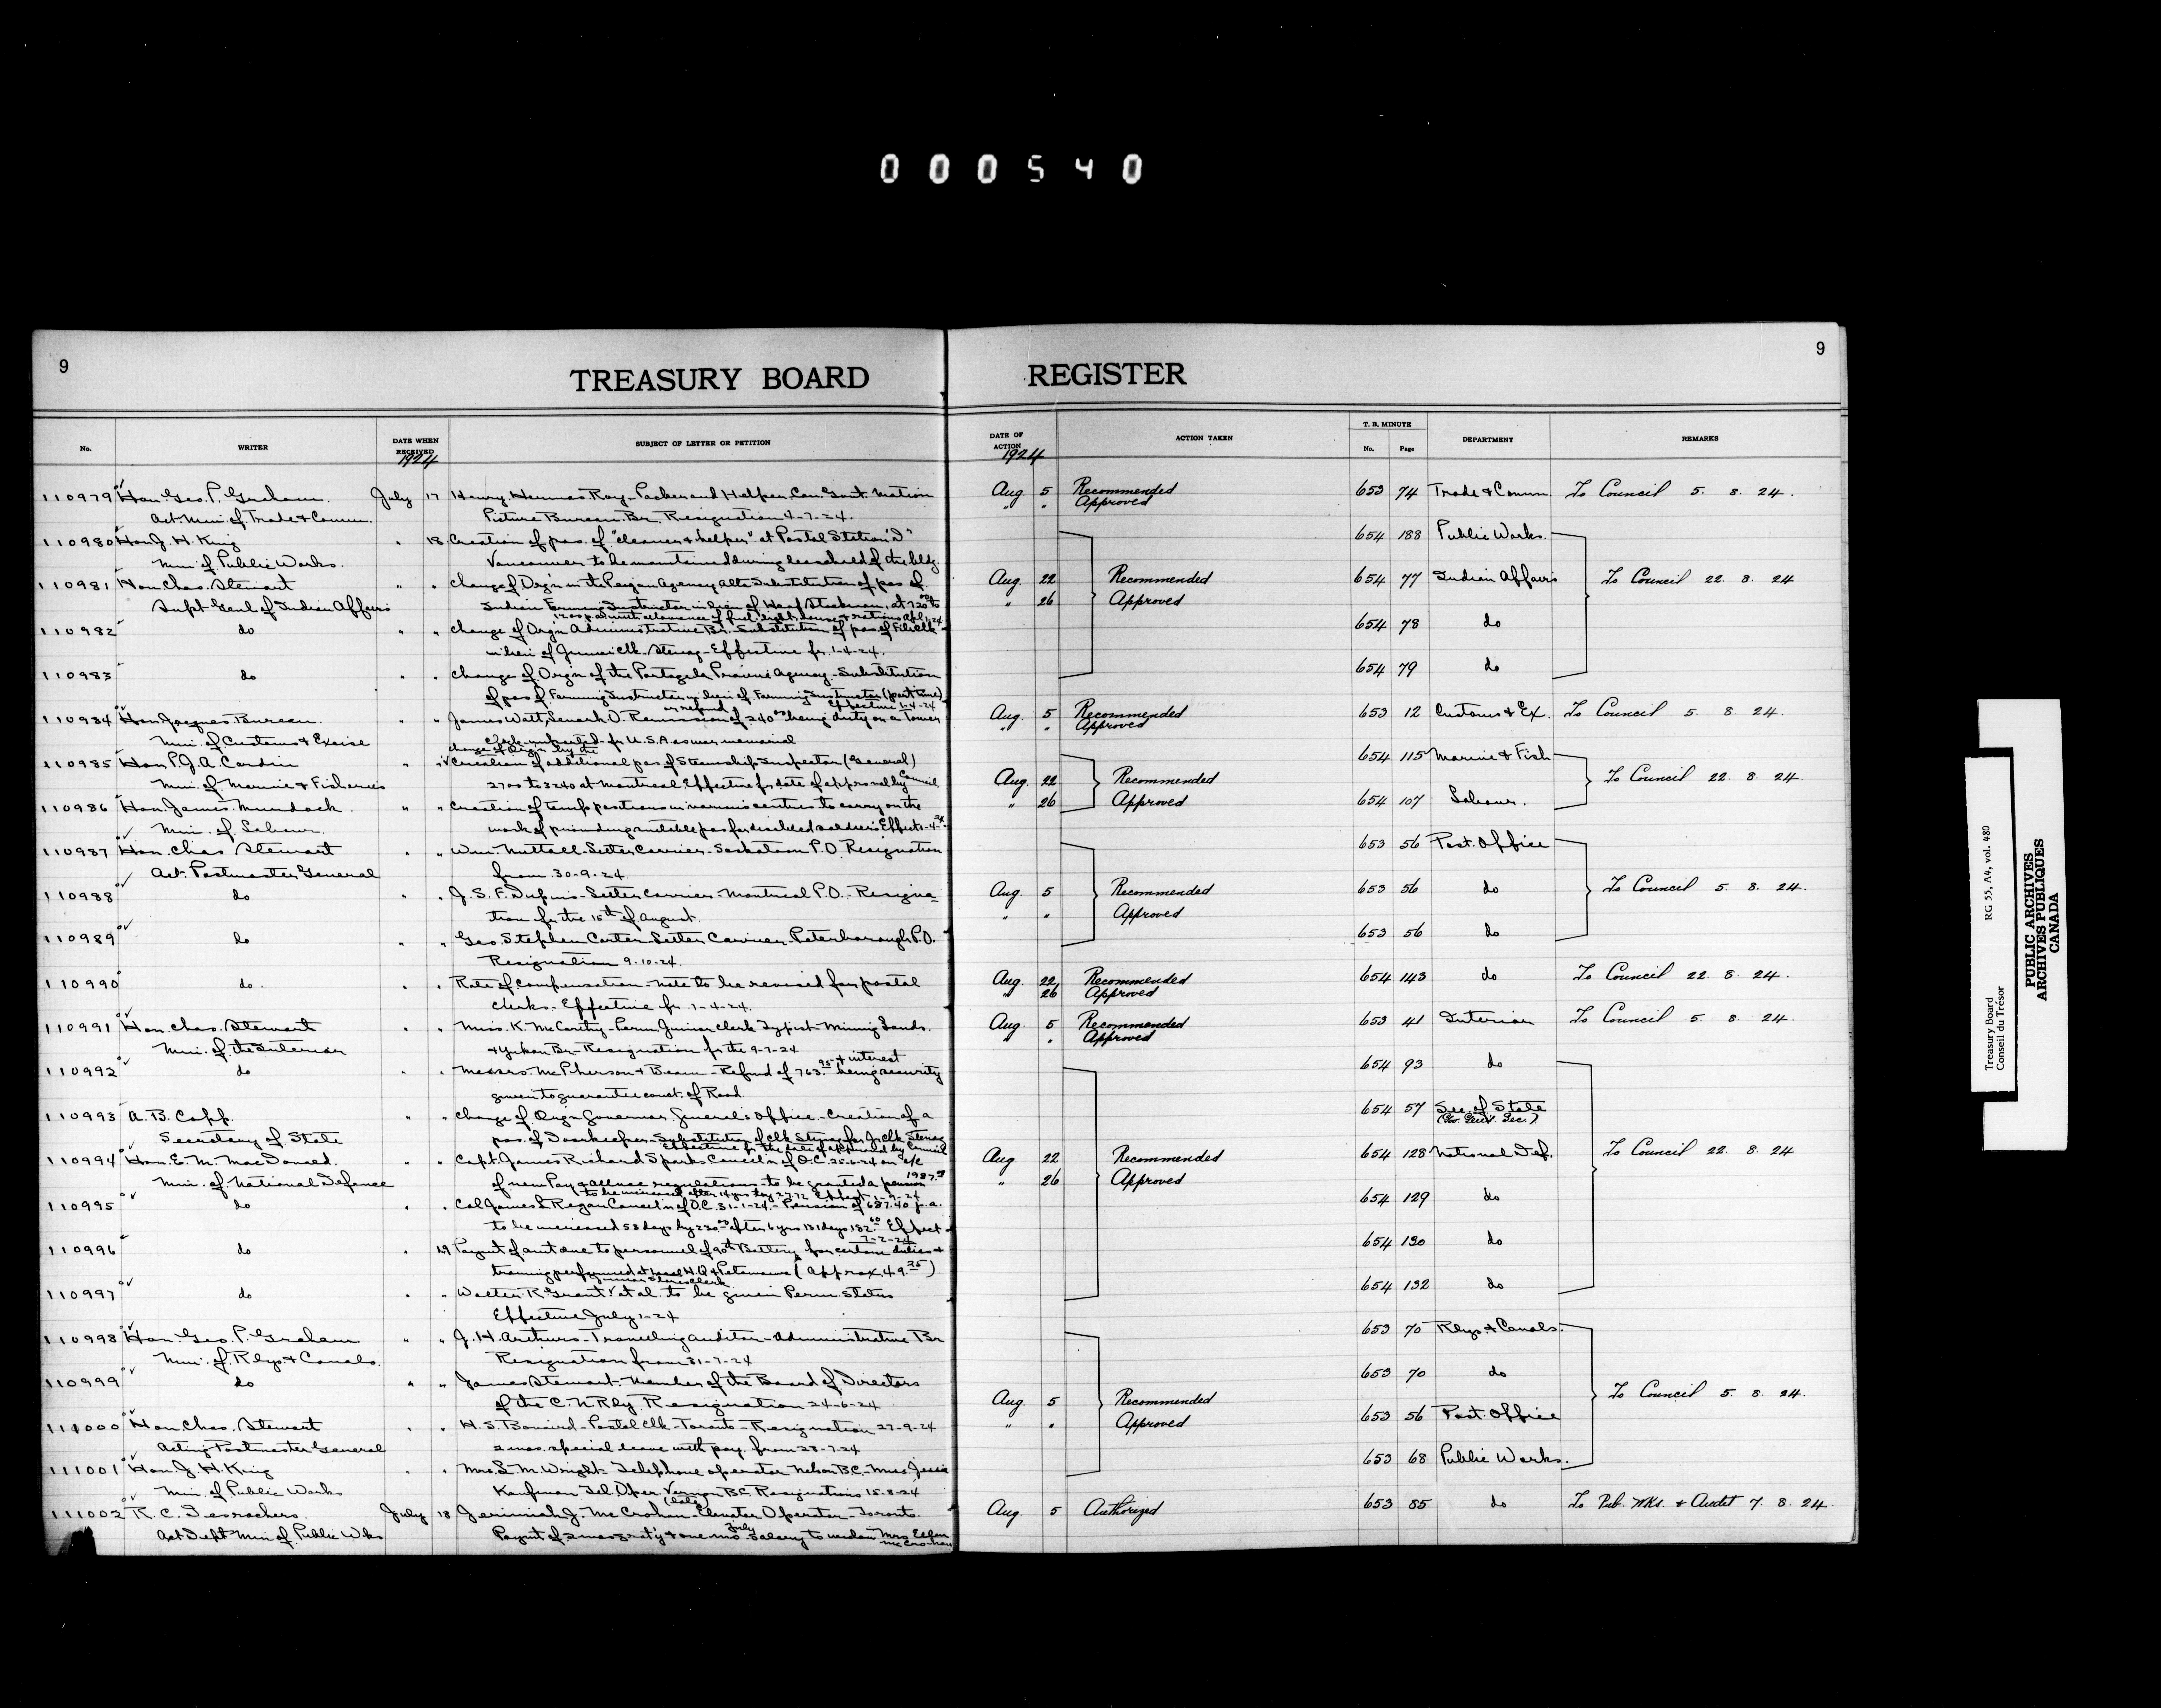 000540
9
TREASURY BOARD REGISTER
9
No. WRITER DATE WHEN RECEIVED SUBJECT OF LETTER OR PETITION DATE OF ACTION ACTION TAKEN T. B. MINUTE No. Page DEPARTMENT REMARKS
1924 1924
110979 Hon. Geo. P. Graham July 17 Henry Hermes Roy - Packer and Helper, Can. Govt. Motion Aug. 5 Recommended 653 74 Trade & Comm. To Council 5. 8. 24.
Act. Min. of Trade & Comm. Picture Bureau Br. Resignation 4-7-24. " " Approved
110980 Hon. J. H. King " 18 Creation of pos. of "cleaner & helper" at Postal Station "D" 654 188 Public Works.
Min. of Public Works. Vancouver to be maintained during leasehold of the bldg.
110981 Hon. Chas. Stewart " " Change of Orgn in the Peigan Agency Alta Substitution of pos of Aug. 22 Recommended 654 77 Indian Affairs To Council 22. 8. 24
Supt Genl of Indian Affairs Indian Farming Instructor in lieu of Head Stockman, at 720 to " 26 Approved
1200 p.a. with allowance of fuel, light, house & rations
110982 do " " Change of Orgn Administrative Br. Substitution of pos of File Clk 654 78 do
in lieu of Junior Clk-Steno - Effective fr. 1-4-24.
110983 do " " Change of Orgn of the Portage la Prairie Agency - Substitution 654 79 do
of pos of Farming Instructor in lieu of Farming Instructor (part time)
Effective 1-4-24
110984 Hon. Jacques Bureau " " James Watt, Lanark O. Remission or refund of 240 being duty on a Tower Aug. 5 Recommended 653 12 Customs & Ex. To Council 5. 8. 24.
Min. of Customs & Excise Clock imported fr U.S.A. as war memorial " " Approved
change of Orgn by the
110985 Hon. P. J. A. Cardin " " Creation of additional pos of Steamship Inspector (General) 654 115 Marine & Fish
Min. of Marine & Fisheries 2700 to 3240 at Montreal Effective fr date of approval by Council Aug. 22 Recommended To Council 22. 8. 24.
110986 Hon. James Murdock " " Creation of temp positions in various centres to carry on the " 26 Approved 654 107 Labour.
Min. of Labour work of providing suitable pos for disabled soldiers Effect 1-4-24
110987 Hon. Chas Stewart " " Wm. Nuttall - Letter Carrier - Saskatoon P.O. Resignation 653 56 Post. Office
Act. Postmaster General from 30-9-24.
110988 do " " J. S. F. Dupuis - Letter Carrier - Montreal P.O. - Resigna- Aug. 5 Recommended 653 56 do To Council 5. 8. 24.
tion fr the 15th of August. " " Approved
110989 do " " Geo. Stephen Carter - Letter Carrier - Peterborough P.O. 653 56 do
Resignation 9-10-24.
110990 do " " Rate of compensation - rate to be revised for postal Aug. 22 Recommended 654 143 do To Council 22. 8. 24.
clerks - Effective fr. 1-4-24. " 26 Approved
110991 Hon. Chas. Stewart " " Miss K. McCarthy - Perm Junior Clerk Typist - Mining Lands Aug. 5 Recommended 653 41 Interior To Council 5. 8. 24.
Min. of the Interior & Yukon Br - Resignation fr the 9-7-24 " " Approved
110992 do " " Messrs McPherson & Beam - Refund of 763.95 + interest being security 654 93 do
given to guarantee const. of Road.
110993 A. B. Copp. " " Change of Orgn Governor General's Office - Creation of a 654 57 Sec. of State
Secretary of State pos. of Doorkeeper - Substitution of Clk Steno for Jr Clk Steno (Gov. Genl's Sec.)
Effective fr the date of approval by Council
110994 Hon. E. M. MacDonald. " " Capt. James Richard Sparks Cancel'n of O.C. 25-6-24 on a/c Aug. 22 Recommended 654 128 National Def. To Council 22. 8. 24
Min. of National Defence of new Pay & Allnce regulations - to be granted a pension " 26 Approved
110995 do " " Col James L Regan Cancel'n of O.C. 31-1-24 - Pension of 687.40 p.a. 654 129 do
to be increased 53 days by 230 after 6 yrs 131 days 132.60 Effect
7-2-24
110996 do " 19 Paymt of amt due to personnel of 90th Battery for certain duties & 654 130 do
training performed at Local H.Q. & Petawawa (Approx. 49.25)
110997 do " " Walter R. Grant et al. to be given Perm. status 654 132 do
Effective July 1-24
110998 Hon. Geo. P. Graham " " J. H. Arthurs - Travelling auditor - Administrative Br 653 70 Rlys & Canals.
Min. of Rlys & Canals. Resignation from 31-7-24
110999 do " " James Stewart - Member of the Board of Directors 653 70 do
of the C.N. Rly. Resignation 24-6-24 Aug. 5 Recommended To Council 5. 8. 24.
111000 Hon. Chas. Stewart " " H. S. Bonierd - Postal Clk - Toronto - Resignation 27-9-24 " " Approved 653 56 Post. Office
Acting Postmaster General 2 mos. special leave with pay. from 28-7-24
111001 Hon. J. H. King " " Mrs. L. M. Wright - Telephone operator Nelson B.C. - Miss Jessie 653 68 Public Works.
Min. of Public Works Kaufman Tel. Oper. Vernon B.C. Resignations 15-8-24
111002 R. C. Desrochers. July 18 (late) Jerimiah J. McCrohan - Elevator Operator - Toronto. Aug. 5 Authorized 653 85 do To Pub. Wks. & Audit 7. 8. 24.
Act Dept Min of Public Wks Paymt of 2 mos graty & one mo July salary to widow Mrs. Ellen McCrohan
Treasury Board RG 55, A4, vol. 480
Conseil du Trésor
PUBLIC ARCHIVES
ARCHIVES PUBLIQUES
CANADA